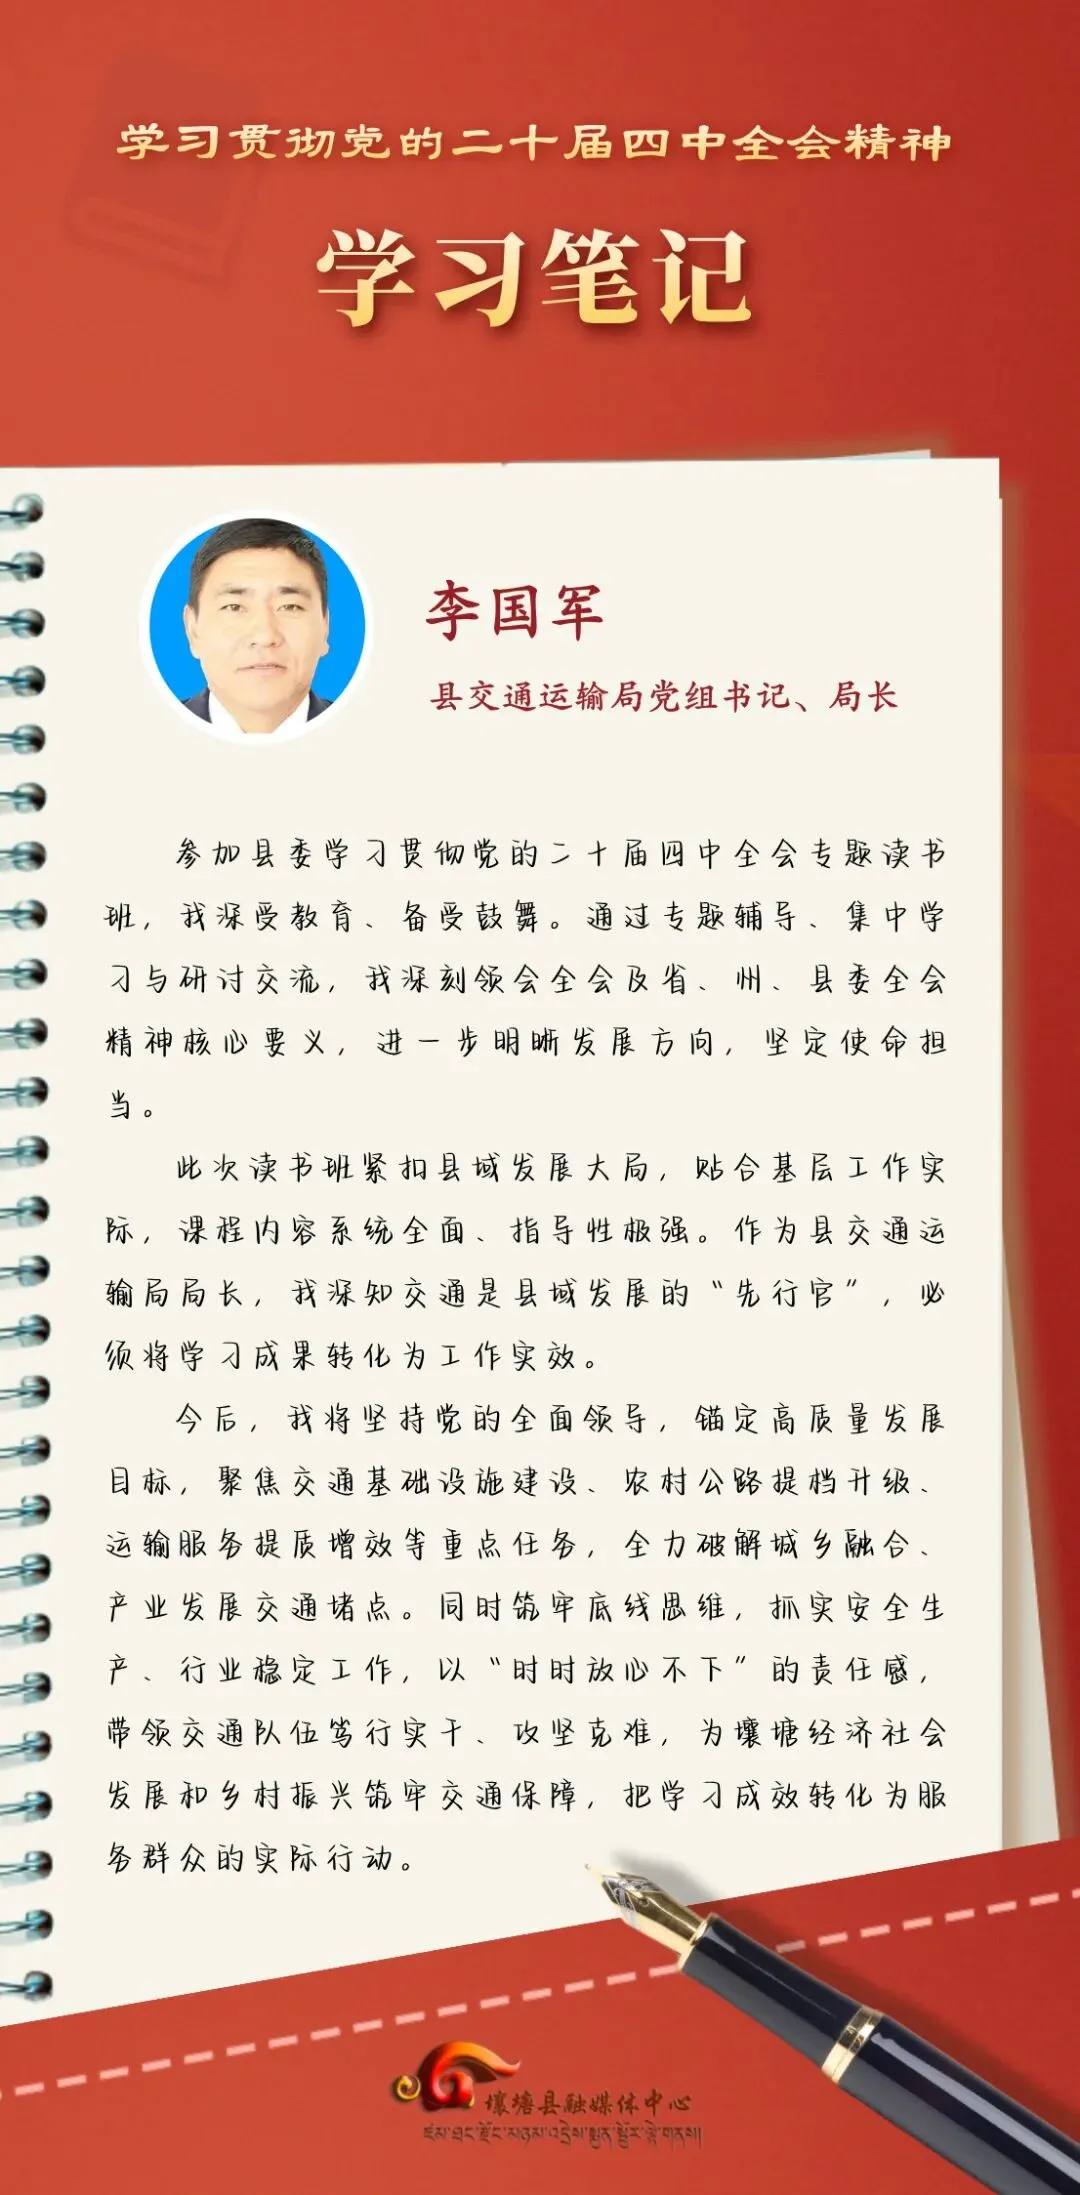 学习贯彻党的二十届四中全会精神
学习笔记
李国军
县交通运输局党组书记、局长
参加县委学习贯彻党的二十届四中全会专题读书
班，我深受教育、备受鼓舞。通过专题辅导、集中学
习与研讨交流，我深刻领会全会及省、州、县委全会
精神核心要义，进一步明晰发展方向，坚定使命担
当。
此次读书班紧扣县域发展大局，贴合基层工作实
际，课程内容系统全面、指导性极强。作为县交通运
输局局长，我深知交通是县域发展的“先行官”，必
须将学习成果转化为工作实效。
今后，我将坚持党的全面领导，锚定高质量发展
目标，聚焦交通基础设施建设、农村公路提档升级、
运输服务提质增效等重点任务，全力破解城乡融合、
产业发展交通堵点。同时筑牢底线思维，抓实安全生
产、行业稳定工作，以“时时放心不下”的责任感，
带领交通队伍笃行实干、攻坚克难，为壤塘经济社会
发展和乡村振兴筑牢交通保障，把学习成效转化为服
务群众的实际行动。
壤塘县融媒体中心
འཛམ་ཐང་རྫོང་མཉམ་འདྲེས་སྨྱན་སྦྱོར་ལྟེ་གནས།